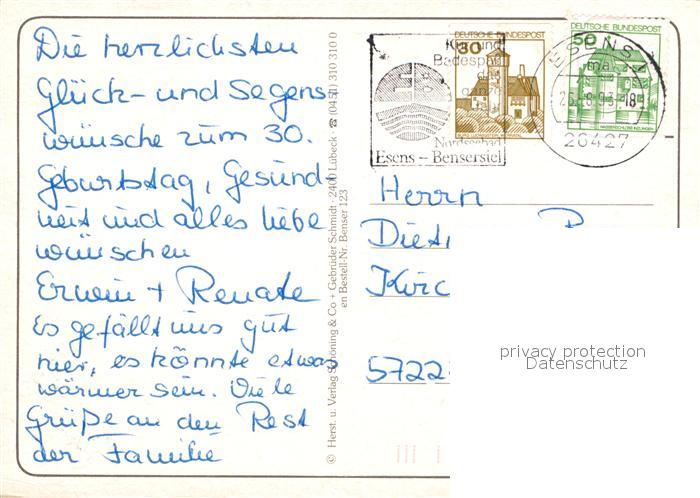 Die herzlichsten
Glück- und Segens-
wünsche zum 30.
Geburtstag, Gesund-
heit und alles liebe
wünschen
Erwin + Renate
Es gefällt uns gut
hier, es könnte etwas
wärmer sein. Viele
Grüße an den Rest
der Familie
© Herst. u. Verlag Schöning & Co + Gebrüder Schmidt · 2400 Lübeck · ☎ (0451) 310 310 0
en Bestell-Nr. Benser 123
DEUTSCHE BUNDESPOST
30
DEUTSCHE BUNDESPOST
50
WASSERSCHLOSS INZLINGEN
Kur und
Badespaß
das
ganze
Nordseebad
Esens – Bensersiel
ESENS, 1
-18
26427
Herrn
Diet
Kirc
5722
privacy protection
Datenschutz